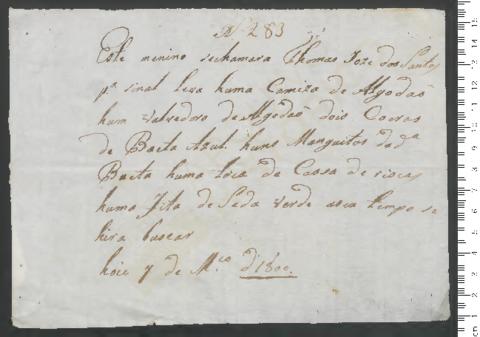 N. 283
Este menino sechamara Thomas Joze dos Santos
p.ª sinal leva huma Camiza de Algodaõ
hum de Algodaõ dois Coeiros
de Baeta Azul huns Manguitos da d.ª
Baeta huma toca de Cassa de riscas
huma fita de Seda verde aseu tempo se
hira buscar
hoie 7 de M.ço d'1800.